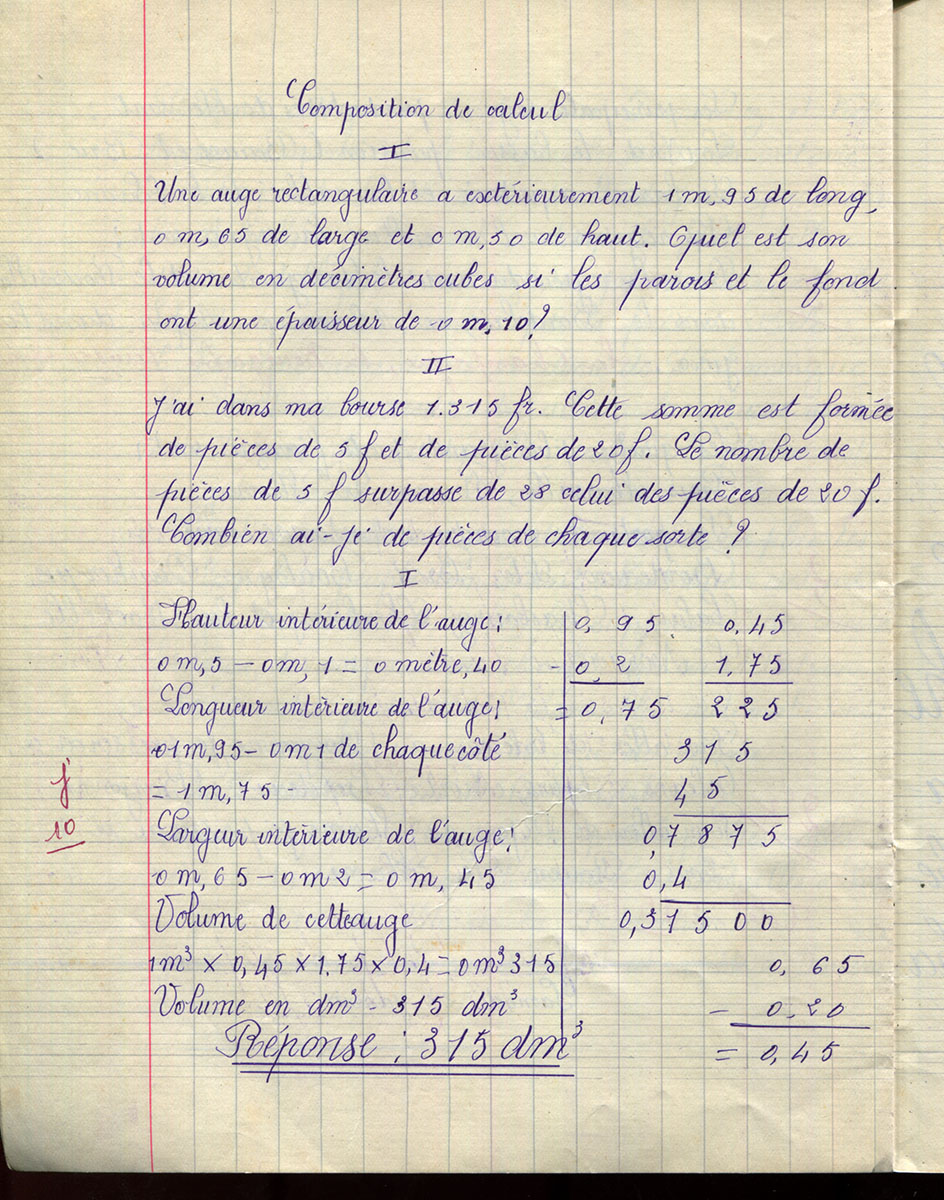 Composition de calcul
I
Une auge rectangulaire a extérieurement 1 m, 95 de long,
0 m, 65 de large et 0 m, 50 de haut. Quel est son
volume en décimètres cubes si les parois et le fond
ont une épaisseur de 0 m, 10 ?
II
J'ai dans ma bourse 1.315 fr. Cette somme est formée
de pièces de 5 f et de pièces de 20 f. Le nombre de
pièces de 5 f surpasse de 28 celui des pièces de 20 f.
Combien ai-je de pièces de chaque sorte ?
I
Hauteur intérieure de l'auge :
0 m, 5 - 0 m, 1 = 0 mètre, 40
Longueur intérieure de l'auge :
01 m, 95 - 0 m 1 de chaque côté
= 1 m, 75
Largeur intérieure de l'auge :
0 m, 65 - 0 m 2 = 0 m, 45
Volume de cette auge
1m³ × 0,45 × 1.75 × 0,4 = 0m³ 315
Volume en dm³ - 315 dm³
Réponse : 315 dm³
0, 95
- 0, 2
= 0, 75
0, 45
1, 75
225
315
45
0,7875
0,4
0,31500
0, 65
- 0. 20
= 0, 45
10